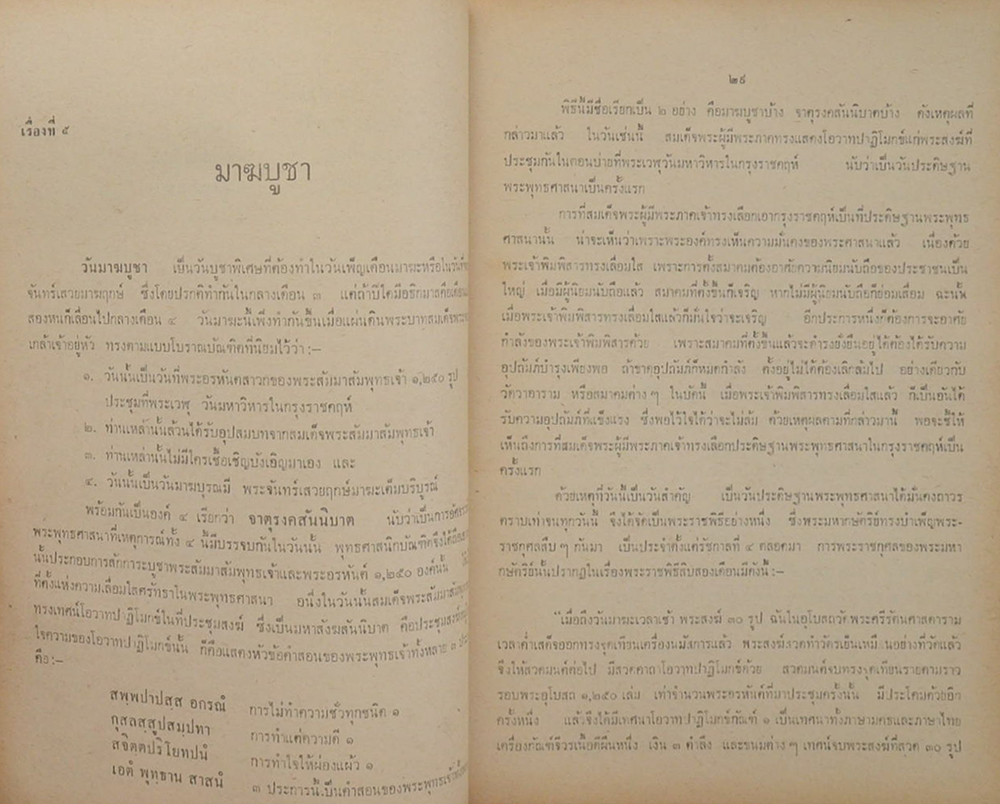 เรื่องที่ ๕
มาฆบูชา
วันมาฆบูชา เป็นวันบูชาพิเศษที่ต้องทำในวันเพ็ญเดือนมาฆะหรือในวันที่
จันทร์เสวยมาฆฤกษ์ ซึ่งโดยปรกติทำกันในกลางเดือน ๓ แต่ถ้าปีใดมีอธิกมาสคือเดือน
สองหนก็เลื่อนไปกลางเดือน ๔ วันมาฆะนี้เพิ่งทำกันขึ้นเมื่อแผ่นดินพระบาทสมเด็จพระ
เกล้าเจ้าอยู่หัว ทรงตามแบบโบราณบัณฑิตที่นิยมไว้ว่า :—
๑. วันนั้นเป็นวันที่พระอรหันตสาวกของพระสัมมาสัมพุทธเจ้า ๑,๒๕๐ รูป
ประชุมที่พระเวฬุ วันมหาวิหารในกรุงราชคฤห์
๒. ท่านเหล่านั้นล้วนได้รับอุปสมบทจากสมเด็จพระสัมมาสัมพุทธเจ้า
๓. ท่านเหล่านั้นไม่มีใครเชื้อเชิญบังเอิญมาเอง และ
๔. วันนั้นเป็นวันมาฆบุรณมี พระจันทร์เสวยฤกษ์มาฆะเต็มบริบูรณ์
พร้อมกันเป็นองค์ ๔ เรียกว่า จาตุรงคสันนิบาต นับว่าเป็นการ
พระพุทธศาสนาที่เหตุการณ์ทั้ง ๔ นี้มีบรรจบกันในวันนั้น พุทธศาสนิกบัณฑิตจึงได้
นั้นประกอบการสักการะบูชาพระสัมมาสัมพุทธเจ้าและพระอรหันต์ ๑,๒๕๐ องค์นั้น
ที่ตั้งแห่งความเลื่อมใสศรัทธาในพระพุทธศาสนา อนึ่งในวันนั้นสมเด็จพระสัมมาสัมพุทธ
ทรงเทศน์โอวาทปาฏิโมกข์ในที่ประชุมสงฆ์ ซึ่งเป็นมหาสังฆสันนิบาต คือประชุมสงฆ์
ใจความของโอวาทปาฏิโมกข์นั้น ก็คือแสดงหัวข้อคำสอนของพระพุทธเจ้าทั้งหลาย ๓
คือ:—
สพฺพปาปสฺส อกรณํ การไม่ทำความชั่วทุกชนิด ๑
กุสลสฺสูปสมฺปทา การทำแต่ความดี ๑
สจิตฺตปริโยทปนํ การทำใจให้ผ่องแผ้ว ๑
เอตํ พุทฺธาน สาสนํ ๓ ประการนี้เป็นคำสอนของพระพุทธเจ้า
๒๙
พิธีนี้มีชื่อเรียกเป็น ๒ อย่าง คือมาฆบูชาบ้าง จาตุรงคสันนิบาตบ้าง ดังเหตุผลที่
กล่าวมาแล้ว ในวันเช่นนี้ สมเด็จพระผู้มีพระภาคทรงแสดงโอวาทปาฏิโมกข์แก่พระสงฆ์ที่
ประชุมกันในตอนบ่ายที่พระเวฬุวันมหาวิหารในกรุงราชคฤห์ นับว่าเป็นวันประดิษฐาน
พระพุทธศาสนาเป็นครั้งแรก
การที่สมเด็จพระผู้มีพระภาคเจ้าทรงเลือกเอากรุงราชคฤห์เป็นที่ประดิษฐานพระพุทธ
ศาสนานั้น น่าจะเห็นว่าเพราะพระองค์ทรงเห็นความมั่นคงของพระศาสนาแล้ว เนื่องด้วย
พระเจ้าพิมพิสารทรงเลื่อมใส เพราะการตั้งสมาคมต้องอาศัยความนิยมนับถือของประชาชนเป็น
ใหญ่ เมื่อมีผู้นิยมนับถือแล้ว สมาคมที่ตั้งขึ้นก็เจริญ หากไม่มีผู้นิยมนับถือก็ย่อมเสื่อม ฉะนั้น
เมื่อพระเจ้าพิมพิสารทรงเลื่อมใสแล้วก็มั่นใจว่าจะเจริญ อีกประการหนึ่งก็ต้องการจะอาศัย
กำลังของพระเจ้าพิมพิสารด้วย เพราะสมาคมที่ตั้งขึ้นแล้วจะดำรงยั่งยืนอยู่ได้ต้องได้รับความ
อุปถัมภ์บำรุงเพียงพอ ถ้าขาดอุปถัมภ์ก็หมดกำลัง ตั้งอยู่ไม่ได้ต้องเลิกล้มไป อย่างเดียวกับ
วัดวาอาราม หรือสมาคมต่าง ๆ ในบัดนี้ เมื่อพระเจ้าพิมพิสารทรงเลื่อมใสแล้ว ก็เป็นอันได้
รับความอุปถัมภ์ที่แข็งแรง ซึ่งพอไว้ใจได้ว่าจะไม่ล้ม ด้วยเหตุผลตามที่กล่าวมานี้ พอจะชี้ให้
เห็นถึงการที่สมเด็จพระผู้มีพระภาคเจ้าทรงเลือกประดิษฐานพระพุทธศาสนาในกรุงราชคฤห์เป็น
ครั้งแรก
ด้วยเหตุที่วันนี้เป็นวันสำคัญ เป็นวันประดิษฐานพระพุทธศาสนาได้มั่นคงถาวร
ตราบเท่าจนทุกวันนี้ จึงได้จัดเป็นพระราชพิธีอย่างหนึ่ง ซึ่งพระมหากษัตริย์ทรงบำเพ็ญพระ-
ราชกุศลสืบ ๆ กันมา เป็นประจำตั้งแต่รัชกาลที่ ๔ ตลอดมา การพระราชกุศลของพระมหา
กษัตริย์นั้นปรากฏในเรื่องพระราชพิธีสิบสองเดือนมีดังนี้ :—
"เมื่อถึงวันมาฆะเวลาเช้า พระสงฆ์ ๓๐ รูป ฉันในอุโบสถวัดพระศรีรัตนศาสดาราม
เวลาค่ำเสด็จออกทรงจุดเทียนเครื่องนมัสการแล้ว พระสงฆ์สวดทำวัตรเย็นเหมือนอย่างที่วัดแล้ว
จึงให้สวดมนต์ต่อไป มีสวดคาถาโอวาทปาฏิโมกข์ด้วย สวดมนต์จบทรงจุดเทียนรายตามราว
รอบพระอุโบสถ ๑,๒๕๐ เล่ม เท่าจำนวนพระอรหันต์ที่มาประชุมครั้งนั้น มีประโคมด้วยอีก
ครั้งหนึ่ง แล้วจึงได้มีเทศนาโอวาทปาฏิโมกข์กัณฑ์ ๑ เป็นเทศนาทั้งภาษามคธและภาษาไทย
เครื่องกัณฑ์จีวรเนื้อดีผืนหนึ่ง เงิน ๓ ตำลึง และขนมต่าง ๆ เทศน์จบพระสงฆ์ที่สวด ๓๐ รูป